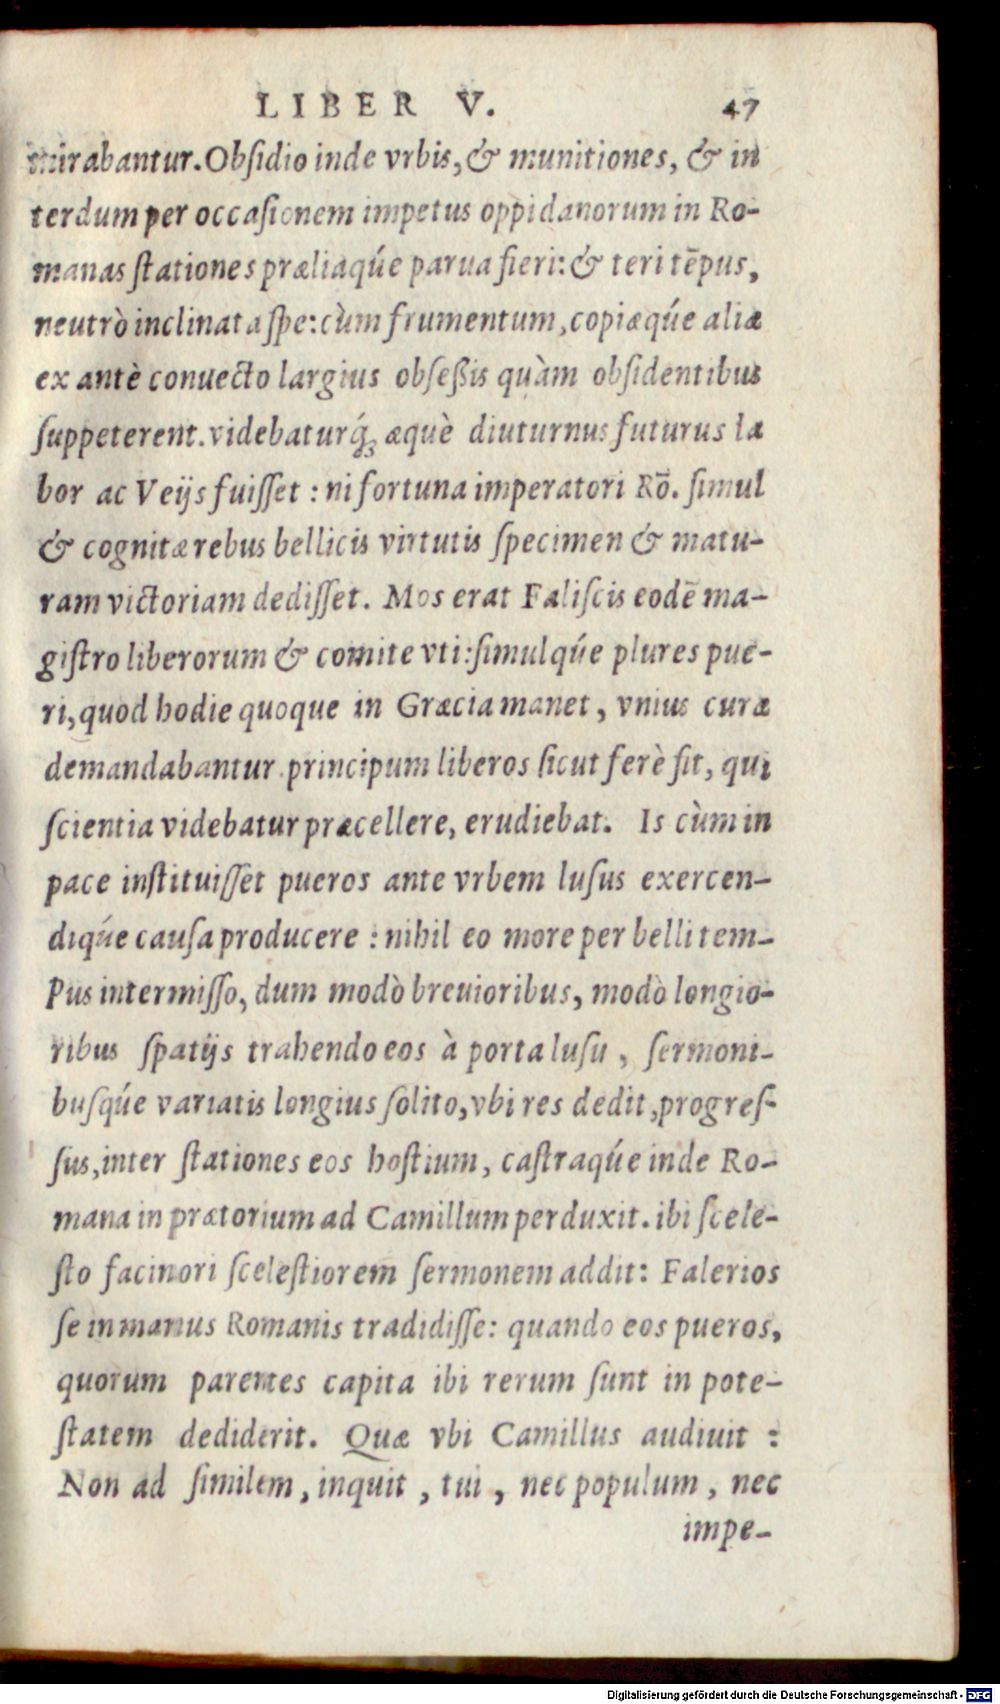 LIBER V. 47
mirabantur. Obſidio inde vrbis, & munitiones, & in
terdum per occaſionem impetus oppidanorum in Ro-
manas ſtationes præliaqúe parua fieri: & teri tēpus,
neutrò inclinata ſpe: cùm frumentum, copiæqúe aliæ
ex antè conuecto largius obſeßis quàm obſidentibus
ſuppeterent. videbaturq́; æquè diuturnus futurus la
bor ac Veijs fuiſſet : ni fortuna imperatori Rō. ſimul
& cognitæ rebus bellicis virtutis ſpecimen & matu-
ram victoriam dediſſet. Mos erat Faliſcis eodē ma-
giſtro liberorum & comite vti: ſimulqúe plures pue-
ri, quod hodie quoque in Græcia manet, vnius curæ
demandabantur. principum liberos ſicut ferè fit, qui
ſcientia videbatur præcellere, erudiebat. Is cùm in
pace inſtituiſſet pueros ante vrbem luſus exercen-
diqúe cauſa producere : nihil eo more per belli tem-
Pus intermiſſo, dum modò breuioribus, modò longio-
ribus ſpatijs trahendo eos à porta luſu, ſermoni-
buſqúe variatis longius ſolito, vbi res dedit, progreſ-
ſus, inter ſtationes eos hoſtium, caſtraqúe inde Ro-
mana in prætorium ad Camillum perduxit. ibi ſcele-
ſto facinori ſceleſtiorem ſermonem addit: Falerios
ſe in manus Romanis tradidiſſe: quando eos pueros,
quorum parentes capita ibi rerum ſunt in pote-
ſtatem dediderit. Quæ vbi Camillus audiuit :
Non ad ſimilem, inquit, tui, nec populum, nec
impe-
Digitalisierung gefördert durch die Deutsche Forschungsgemeinschaft - DFG